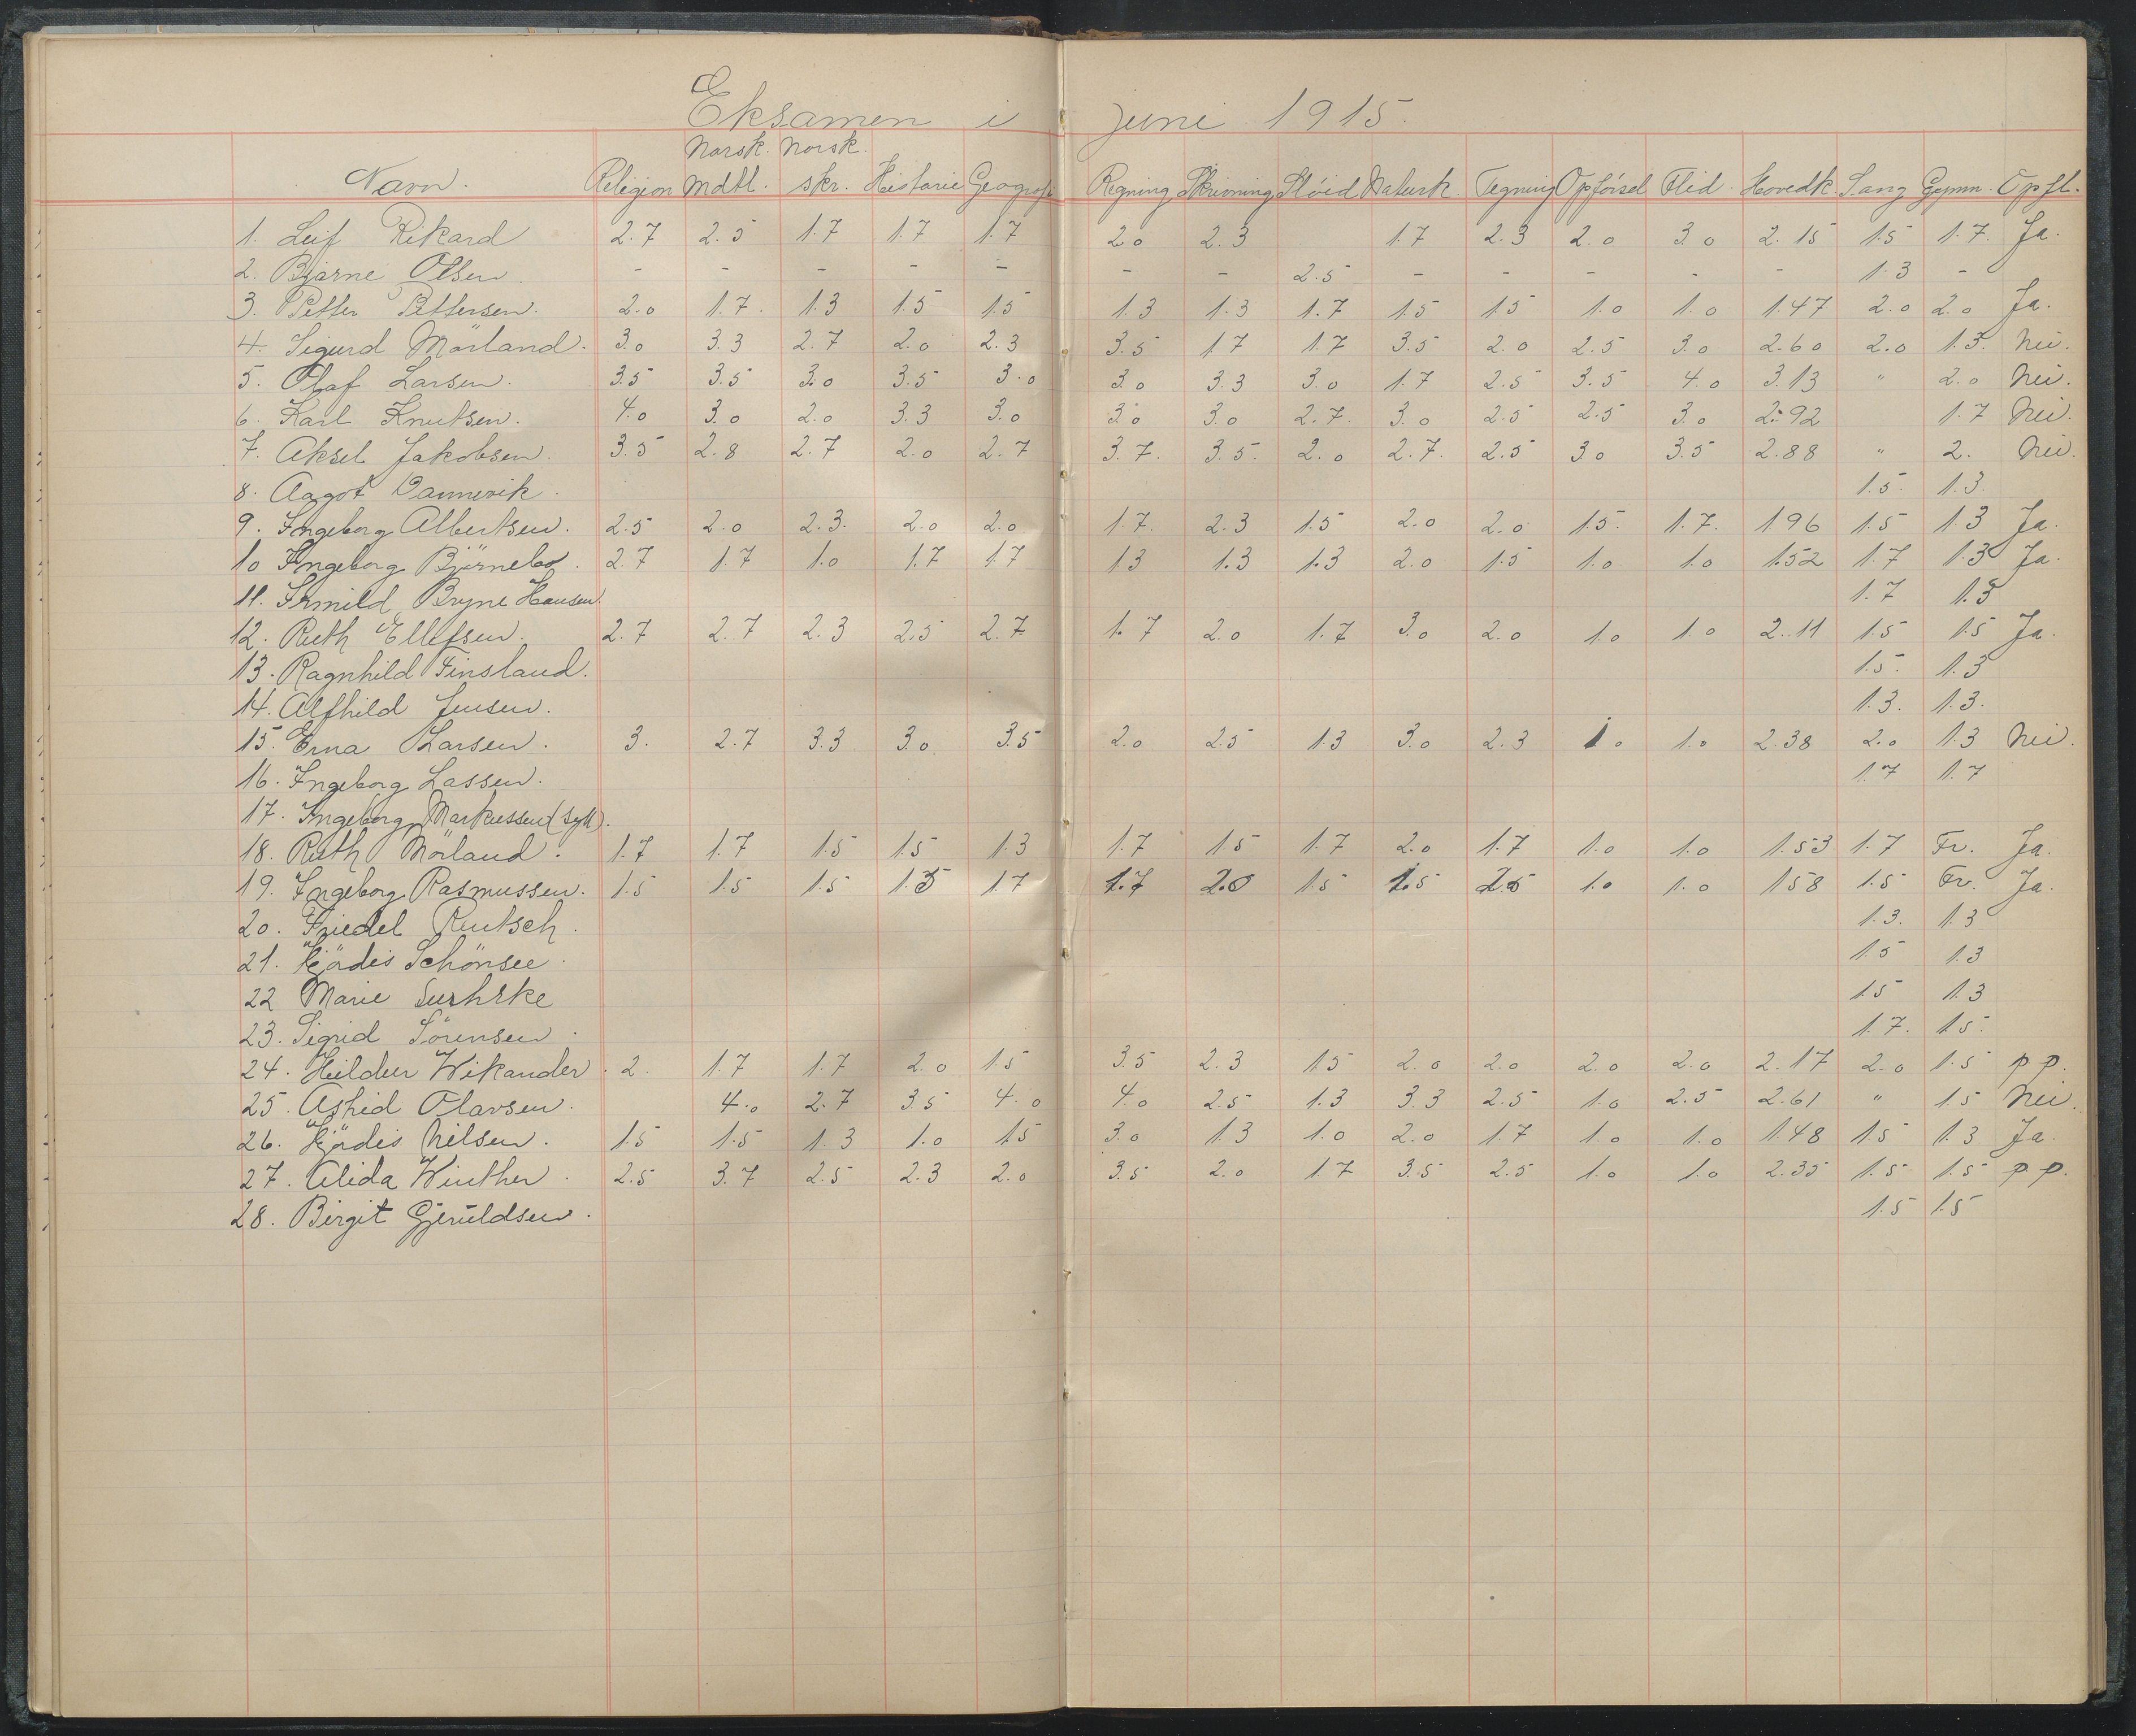 Eksamen i juni 1915.
Norsk. Norsk.
Navn. Religion mdtl. skr. Historie Geografi Regning Skrivning Slöid Naturk. Tegning Opförsel Flid Hovedk. Sang Gymn. Opfl.
1. Leif Rikard 2.7 2.5 1.7 1.7 1.7 2.0 2.3 1.7 2.3 2.0 3.0 2.15 1.5 1.7. Ja.
2. Bjarne Olsen. - - - - - - - 2.5 - - - - - 1.3 -
3. Petter Pettersen. 2.0 1.7. 1.3 1.5 1.5 1.3 1.3 1.7 1.5 1.5 1.0 1.0 1.47 2.0 2.0 Ja.
4. Sigurd Mörland. 3.0 3.3 2.7 2.0 2.3 3.5 1.7 1.7 3.5 2.0 2.5 3.0 2.60 2.0 1.5. Nei.
5. Olaf Larsen. 3.5 3.5 3.0 3.5 3.0 3.0 3.3 3.0 1.7 2.5 3.5 4.0 3.13 " 2.0 Nei.
6. Karl Knutsen. 4.0 3.0 2.0 3.3 3.0 3.0 3.0 2.7. 3.0 2.5 2.5 3.0 2.92 1.7 Nei.
7. Aksel Jakobsen. 3.5 2.8 2.7 2.0 2.7 3.7. 3.5. 2.0 2.7. 2.5 3.0 3.5 2.88 " 2. Nei.
8. Aagot Dannevik. 1.5. 1.3.
9. Ingeborg Albertsen. 2.5 2.0 2.3. 2.0 2.0 1.7. 2.3 1.5 2.0 2.0 1.5. 1.7. 1.96 1.5 1.3 Ja.
10 Ingeborg Björnebo. 2.7 1.7 1.0 1.7 1.7 1.3 1.3 1.3 2.0 1.5 1.0 1.0 1.52 1.7 1.3 Ja.
11. Irmild Bryne Hansen. 1.7 1.3
12. Ruth Ellefsen. 2.7 2.7 2.3 2.5 2.7 1.7 2.0 1.7 3.0 2.0 1.0 1.0 2.11 1.5 1.5 Ja.
13. Ragnhild Finsland. 1.5. 1.3
14. Alfhild Jensen. 1.3. 1.3.
15. Erna Larsen. 3. 2.7 3.3 3.0 3.5 2.0 2.5 1.3 3.0 2.3 1.0 1.0 2.38 2.0 1.3 Nei.
16. Ingeborg Lassen. 1.7 1.7
17. Ingeborg Markussen (syk).
18. Ruth Mörland. 1.7 1.7 1.5 1.5 1.3 1.7 1.5 1.7 2.0 1.7 1.0 1.0 1.53 1.7 Fr. Ja.
19. Ingeborg Rasmussen. 1.5 1.5 1.5 1.3 1.7 1.7 2.0 1.5 1.5 2.5 1.0 1.0 1.58 1.5 Fr. Ja.
20. Friedel Rentsch. 1.3. 1.3
21. Hjördis Schönsee. 1.5 1.3
22 Marie 1.5 1.3
23. Sigrid Sörensen. 1.7. 1.5.
24. Hildur Wikander. 2. 1.7 1.7 2.0 1.5 3.5 2.3 1.5 2.0 2.0 2.0 2.0 2.17 2.0 1.5 p p.
25. Astrid Olavsen. 4.0 2.7 3.5 4.0 4.0 2.5 1.3 3.3 2.5 1.0 2.5 2.61 " 1.5 Nei.
26. Hjördis Nilsen. 1.5 1.5 1.3 1.0 1.5 3.0 1.3 1.0 2.0 1.7 1.0 1.0 1.48 1.5 1.3 Ja.
27. Alida Winther. 2.5 3.7 2.5 2.3 2.0 3.5 2.0 1.7 3.5 2.5 1.0 1.0 2.35 1.5 1.5 p.p.
28. Birgit Gjeruldsen. 1.5 1.5